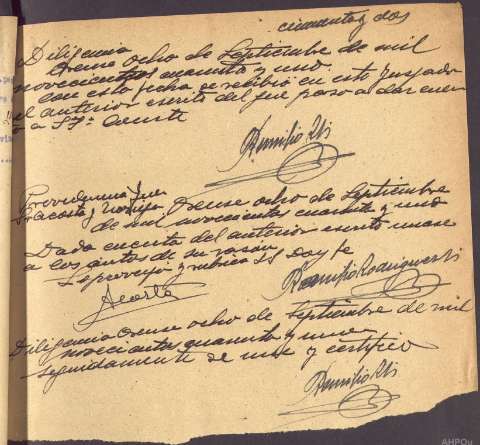 cincuenta y dos
Diligencia
Orense ocho de Septiembre de mil
novecientos cuarenta y uno
Con esta fecha se recibió en este Juzgado
el anterior escrito del que paso a dar cuen
ta a SSª. Orense
Remilio Rdz
Providencia Juez
Sr Acosta y
Orense ocho de Septiembre
de mil novecientos cuarenta y uno
Dada cuenta del anterior escrito unase
a los autos de su razón
Lo proveyo y rubrica SS Doy fe
Acosta
Remilio Rodriguez
Diligencia Orense ocho de Septiembre de mil
novecientos cuarenta y uno
seguidamente se une y certifico
Remilio Rdz
AHPOu